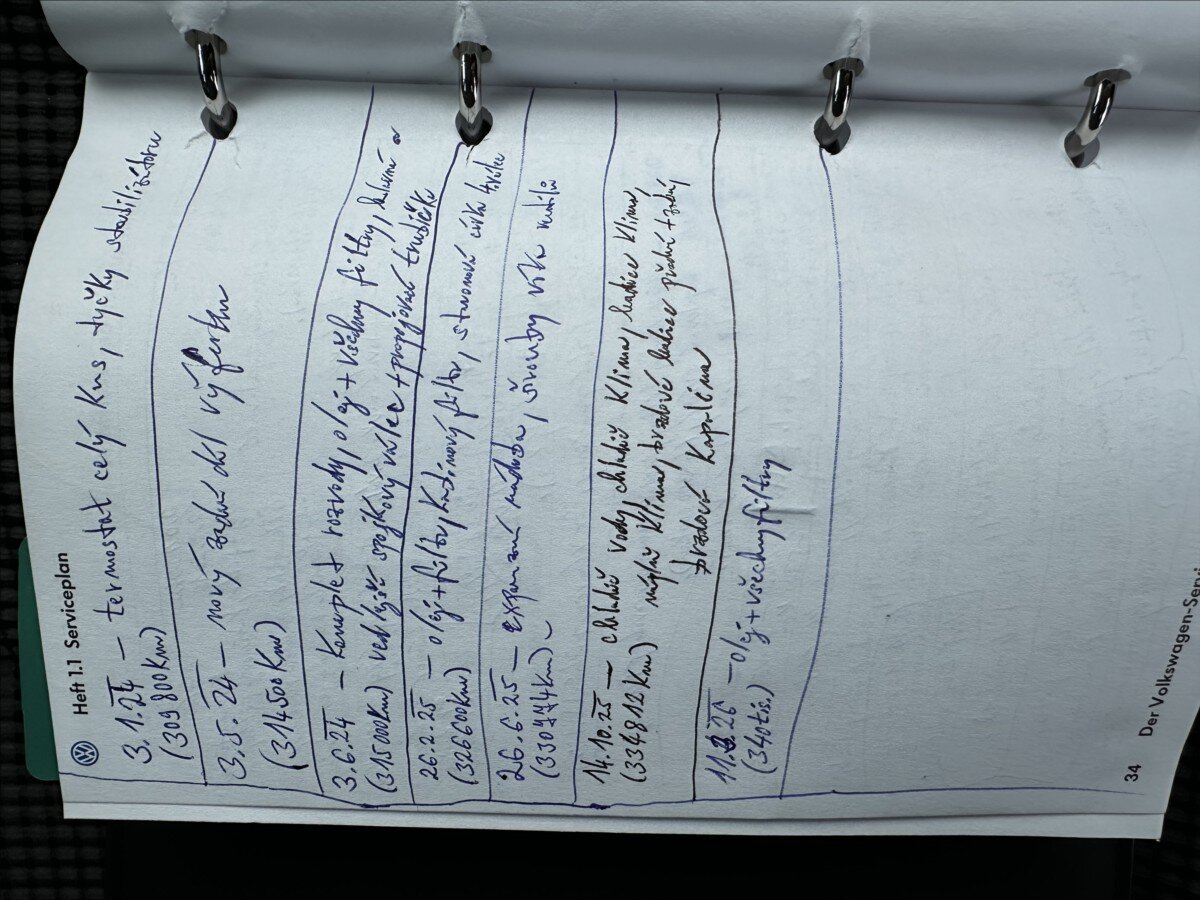 Heft 1.1 Serviceplan
3.1.24 – termostat celý kus, tyčky stabilizátoru
(309 800 km)
3.5.24 – nový zadní díl výfuku
(314500 km)
3.6.24 – komplet rozvody, olej + všechny filtry,
(315000 km) vedlejší spojkový válec + propojovací trubička
26.2.25 – olej + filtr, kabinový filtr, 4. válec
(326600 km)
26.6.25 – expanzní nádoba, šrouby víka ventilů
(330774 km)
14.10.25 – chladič vody, chladič klima, hadice klima,
(334812 km) náplň klima, brzdové hadice přední + zadní,
brzdová kapalina
26 – olej + všechny filtry
(340 tis.)
34
Der Volkswagen-Servi